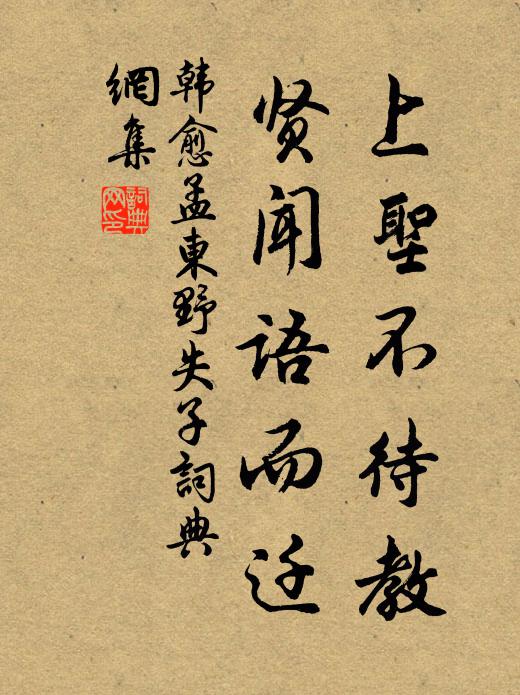 上聖不待教
贤聞语而迁
韩愈孟東野失子詞典
網集
詞典
网印